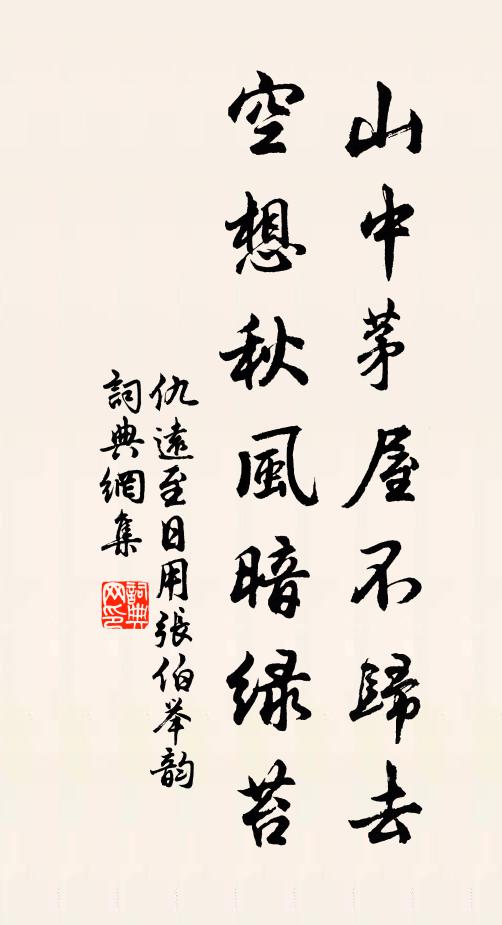 山中茅屋不歸去
空想秋風暗绿苔
仇遠至日用張伯举韵
詞典網集
詞典网印